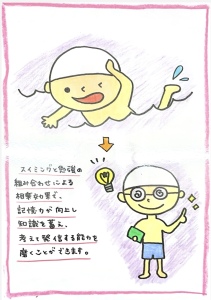 スイミングと勉強の
組み合わせによる
相乗効果で、
記憶力が向上し
知識を蓄え、
考えて発信する能力を
磨くことができます。